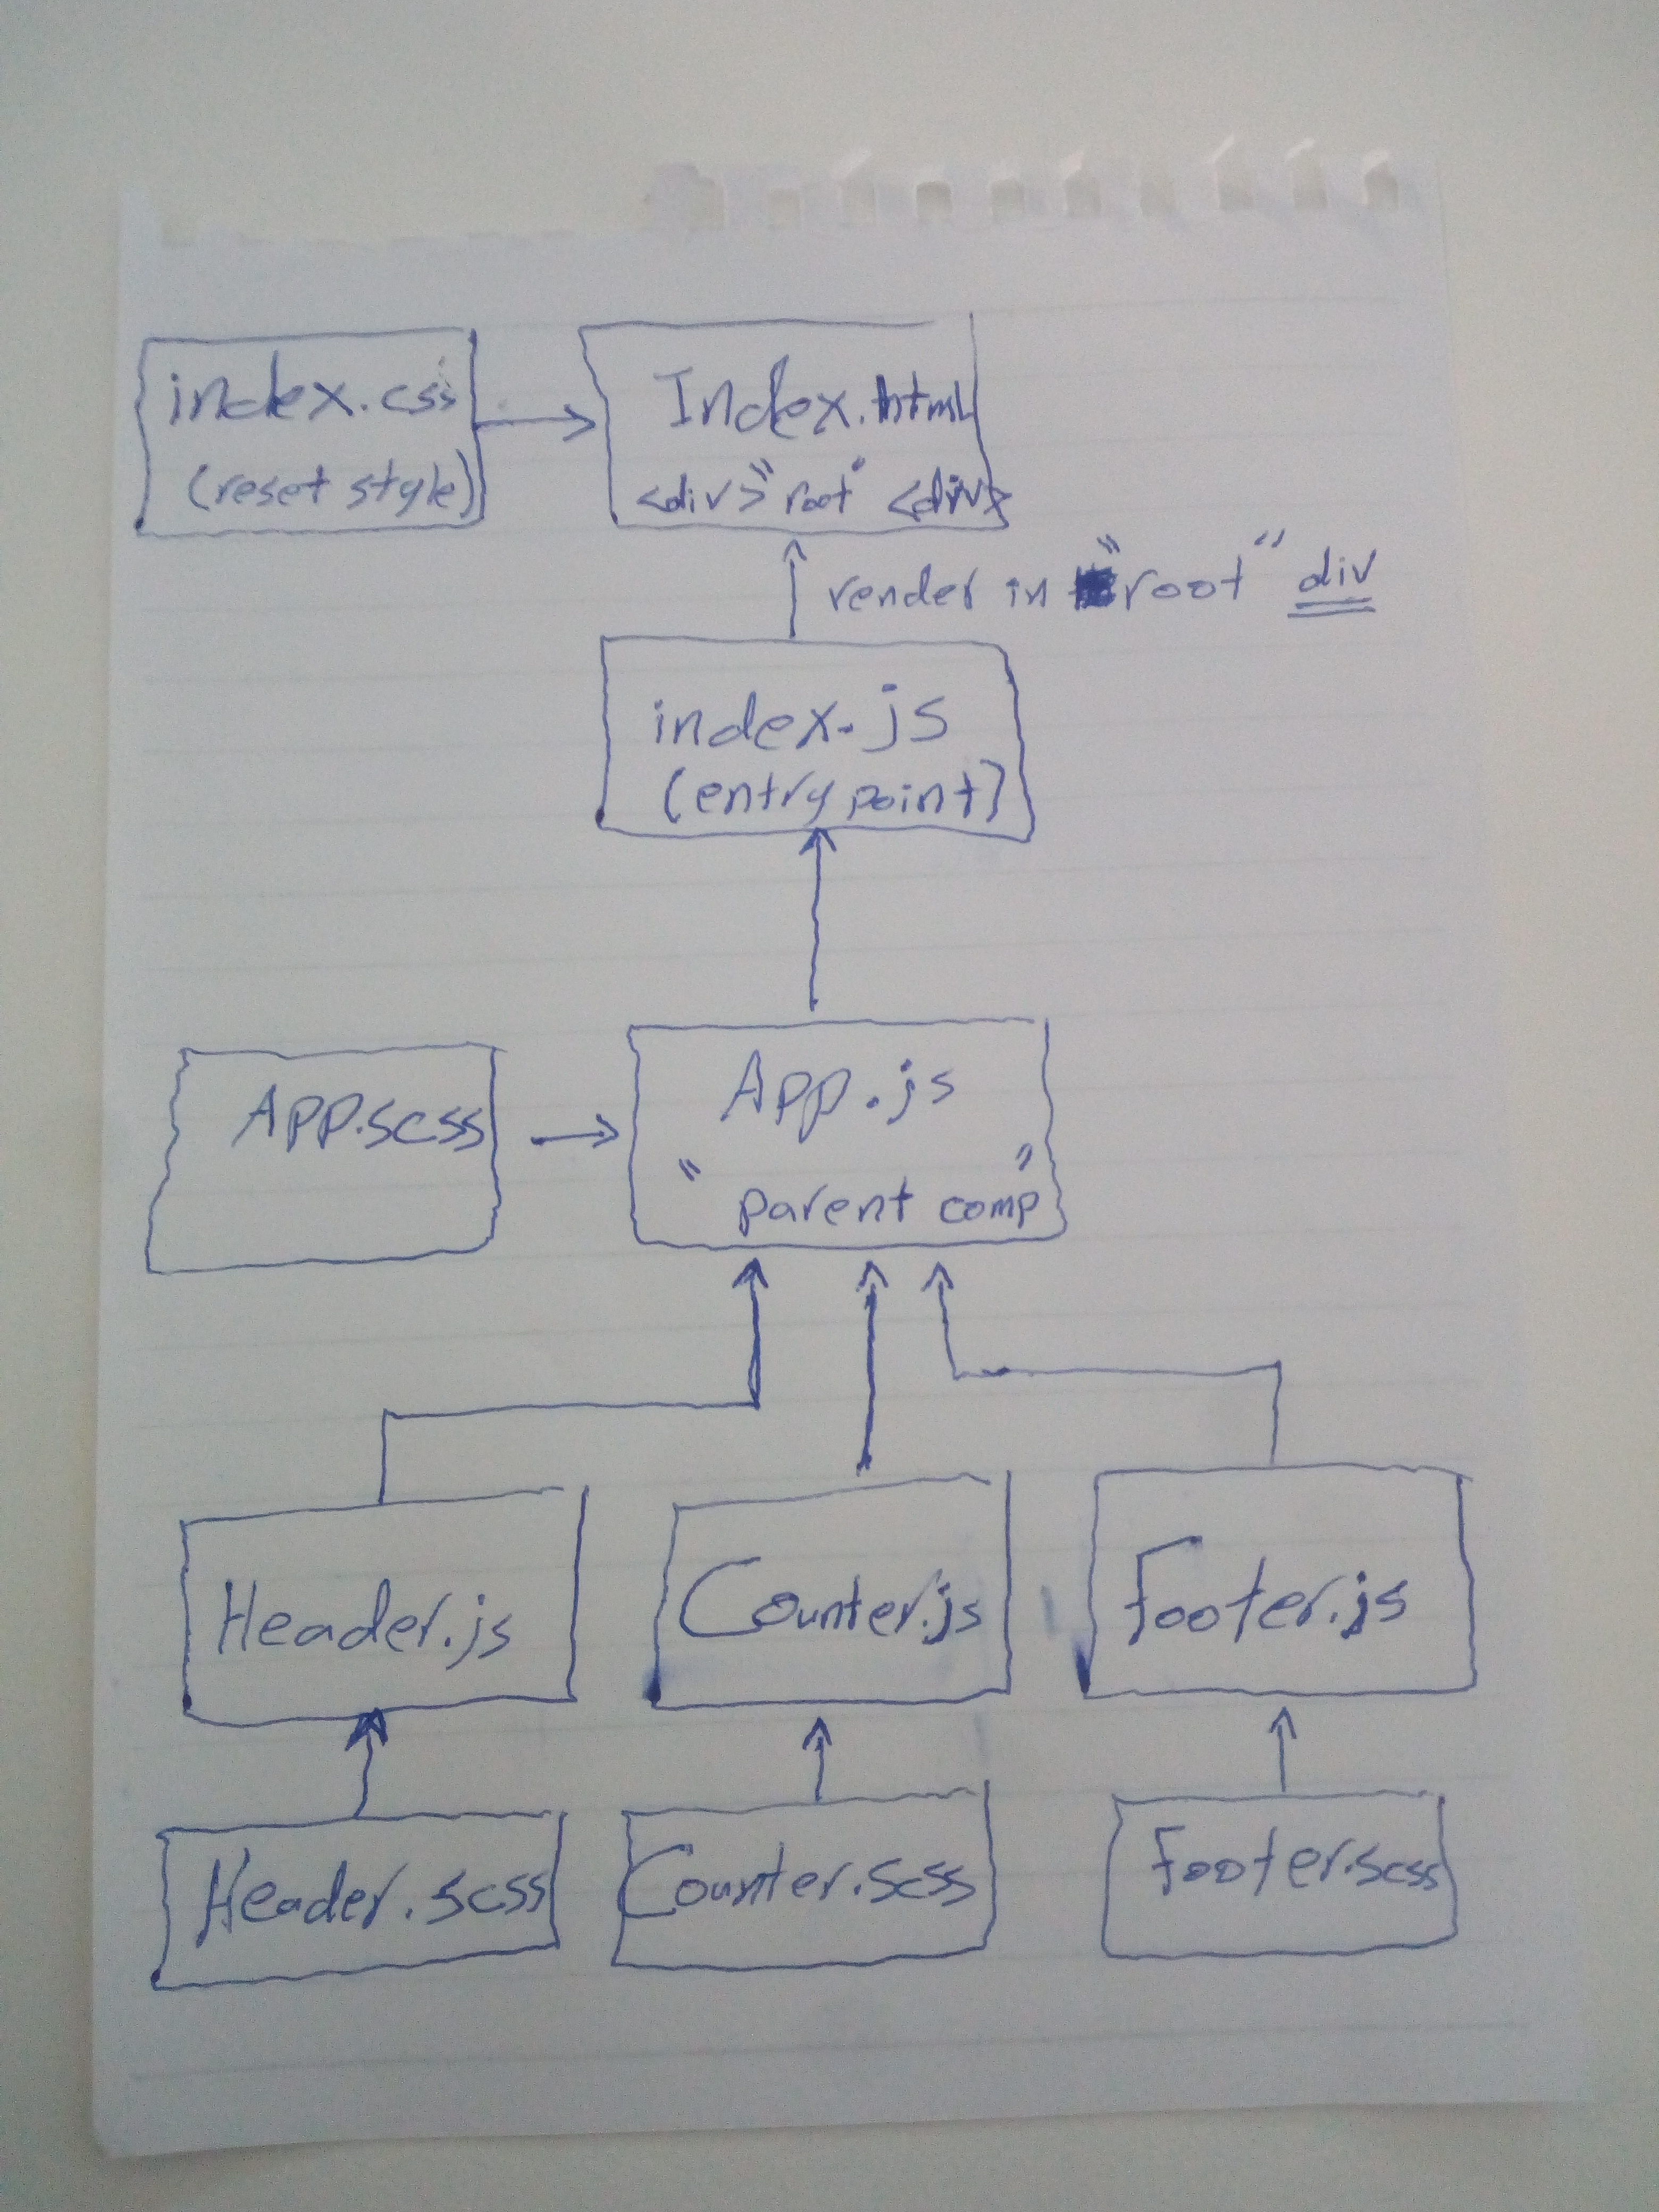 index.css
(reset style)
Index.html
<div>"root" <div>
render in "root" div
index.js
(entry point)
App.scss
App.js
"parent comp"
Header.js
Counter.js
Footer.js
Header.scss
Counter.scss
Footer.scss